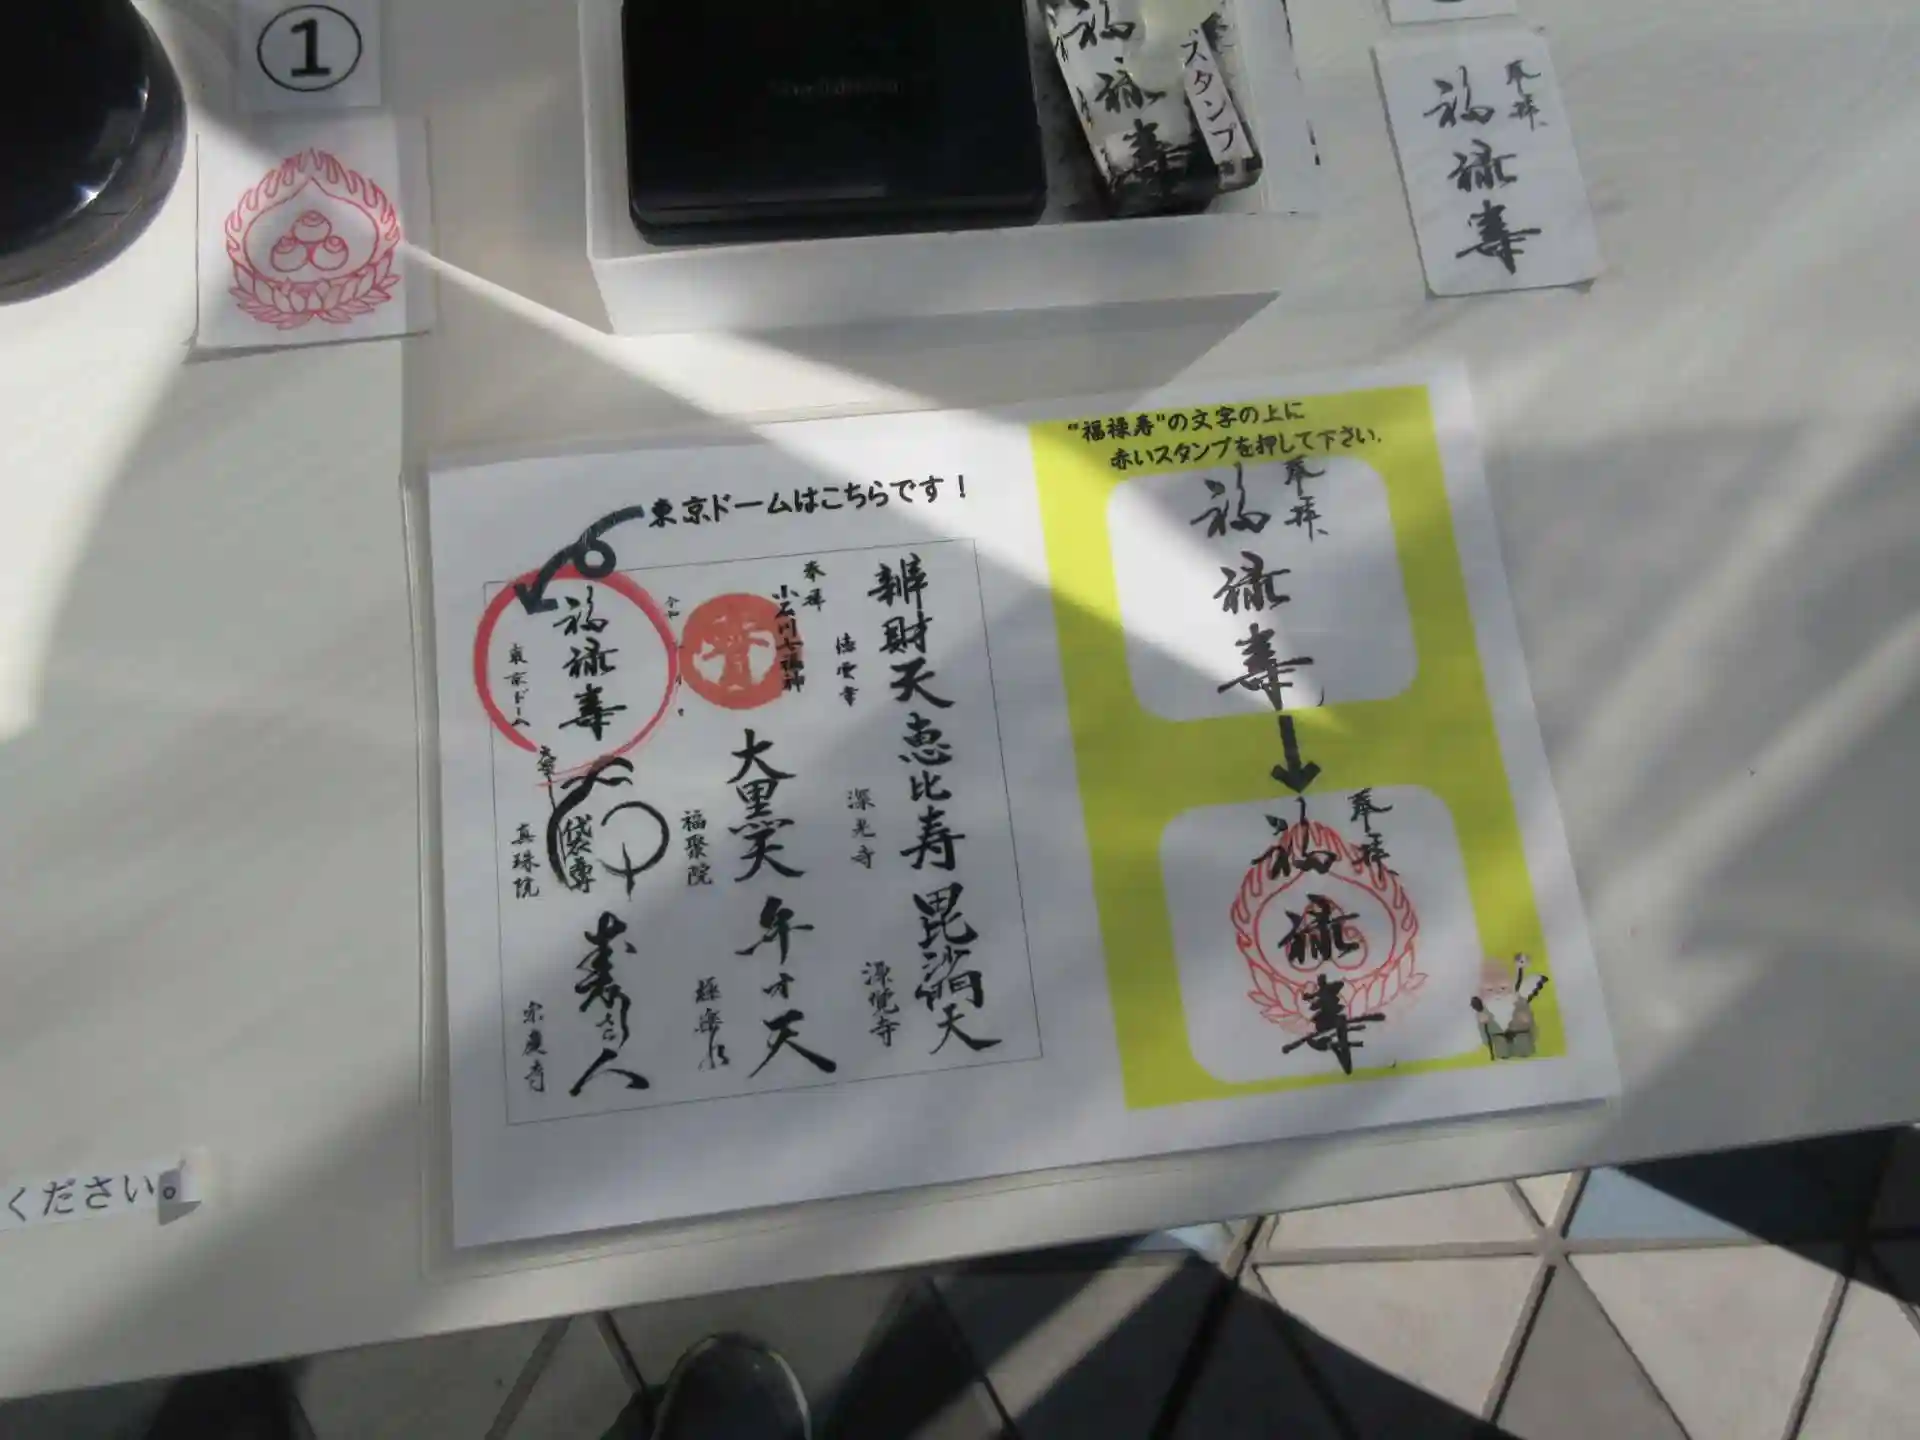 ①
福
禄
寿
スタンプ
奉拝
福
禄
寿
"福禄寿"の文字の上に
赤いスタンプを押して下さい.
奉拝
福
禄
寿
奉拝
福
禄
寿
東京ドームはこちらです！
辨財天
徳雲寺
恵比寿
深光寺
毘沙門天
源覚寺
奉拝
小石川七福神
大黒天
福聚院
弁才天
極楽水
福禄寿
東京ドーム
布袋尊
真珠院
寿老人
宗慶寺
ください。